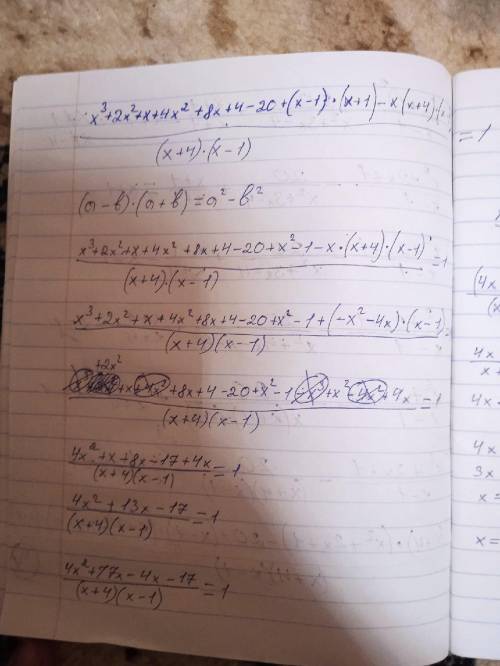 x³+2x²+x+4x²+8x+4-20+(x-1)·(x+1)-x(x+4)·(x
(x+4)·(x-1)
=1
(a-b)·(a+b)=a²-b²
x³+2x²+x+4x²+8x+4-20+x²-1-x·(x+4)·(x-1)
(x+4)·(x-1)
=1
x³+2x²+x+4x²+8x+4-20+x²-1+(-x²-4x)·(x-1)
(x+4)(x-1)
+2x²
+x+4x²+8x+4-20+x²-1-x³+x²-4x²+4x
(x+4)(x-1)
=1
4x²+x+8x-17+4x
(x+4)(x-1)
=1
4x²+13x-17
(x+4)(x-1)
=1
4x²+17x-4x-17
(x+4)(x-1)
=1
(4x
(x
4x
x+
4x
4x
3x
x=
x=